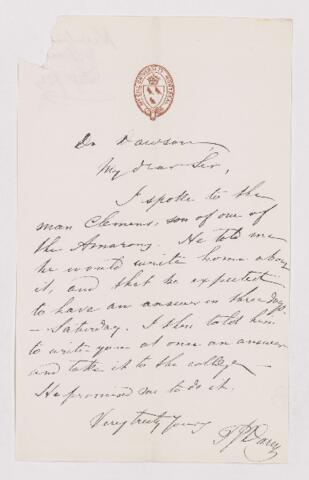 McGILL UNIVERSITY MONTREAL
Dr Dawson,
My dear Sir,
I spoke to the
man Clemens, son of one of
the . He told me
he would write home about
it, and that he expected
to have an answer in three days
- Saturday. I then told him
to write you at once an answer
and take it to the college -
He promised me to do it.
Very truly yours